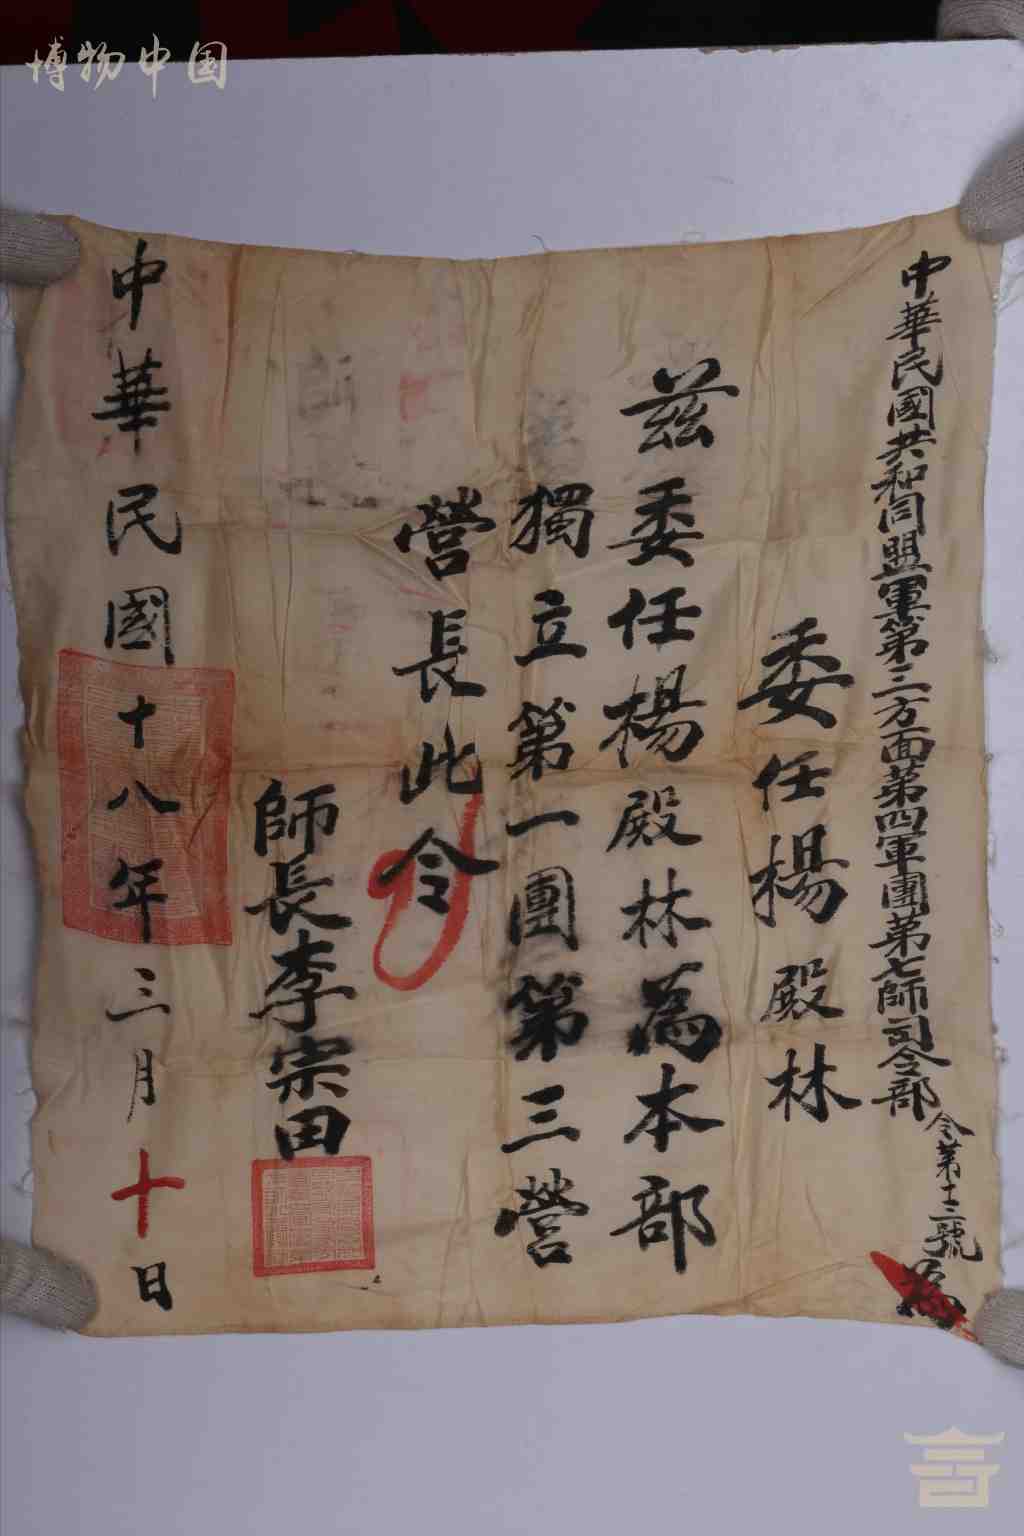 博物中国
中華民國共和同盟軍第三方面第四軍團第七師司令部令第十三號
為
委任楊殿林
兹委任楊殿林為本部
獨立第一團第三營
營長此令
師長李宗田
中華民國十八年三月十日